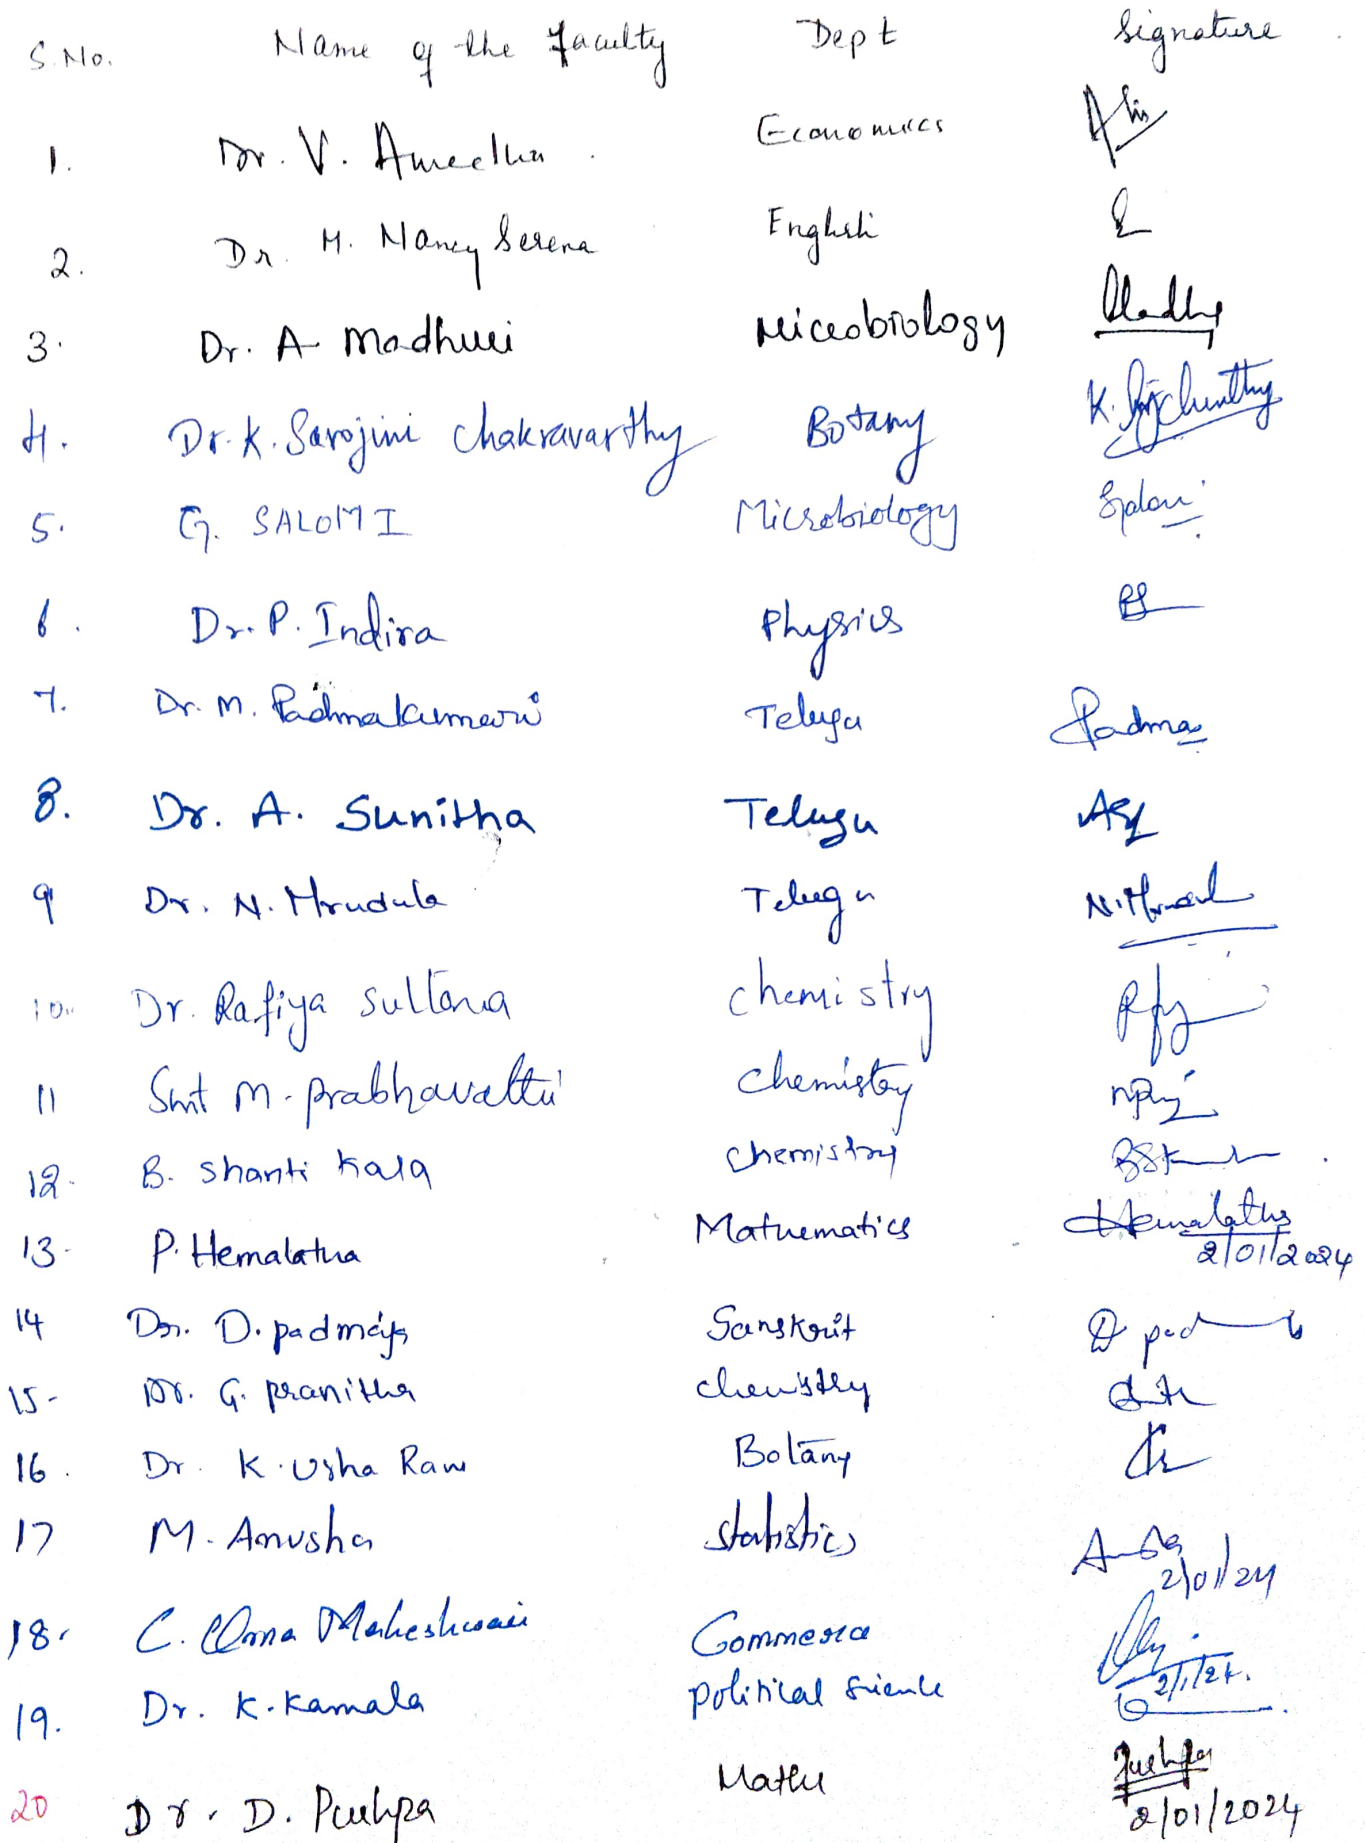 S.No. Name of the faculty Dept Signature
1. Dr. V. Ameedha Economics
2. Dr. M. Nancy Serena English
3. Dr. A Madhuri Microbiology
4. Dr. K. Sarojini Chakravarthy Botany
5. G. SALOMI Microbiology
6. Dr. P. Indira Physics
7. Dr. M. Padmakumari Telugu Padma
8. Dr. A. Sunitha Telugu
9 Dr. N. Mrudula Telugu
10. Dr. Rafiya Sultana chemistry
11 Smt M. prabhavathi chemistry
12. B. shanti kala chemistry
13. P. Hemalatha Mathematics Hemalatha
2/01/2024
14 Dr. D. padmaja Sanskrit
15- Dr. G. pranitha chemistry
16. Dr. K. Usha Rani Botany
17 M. Anusha Statistics
2/01/24
18. C. Uma Maheshwari Commerce
2/1/24.
19. Dr. K. Kamala political Science
20 Dr. D. Pushpa Maths Pushpa
2/01/2024